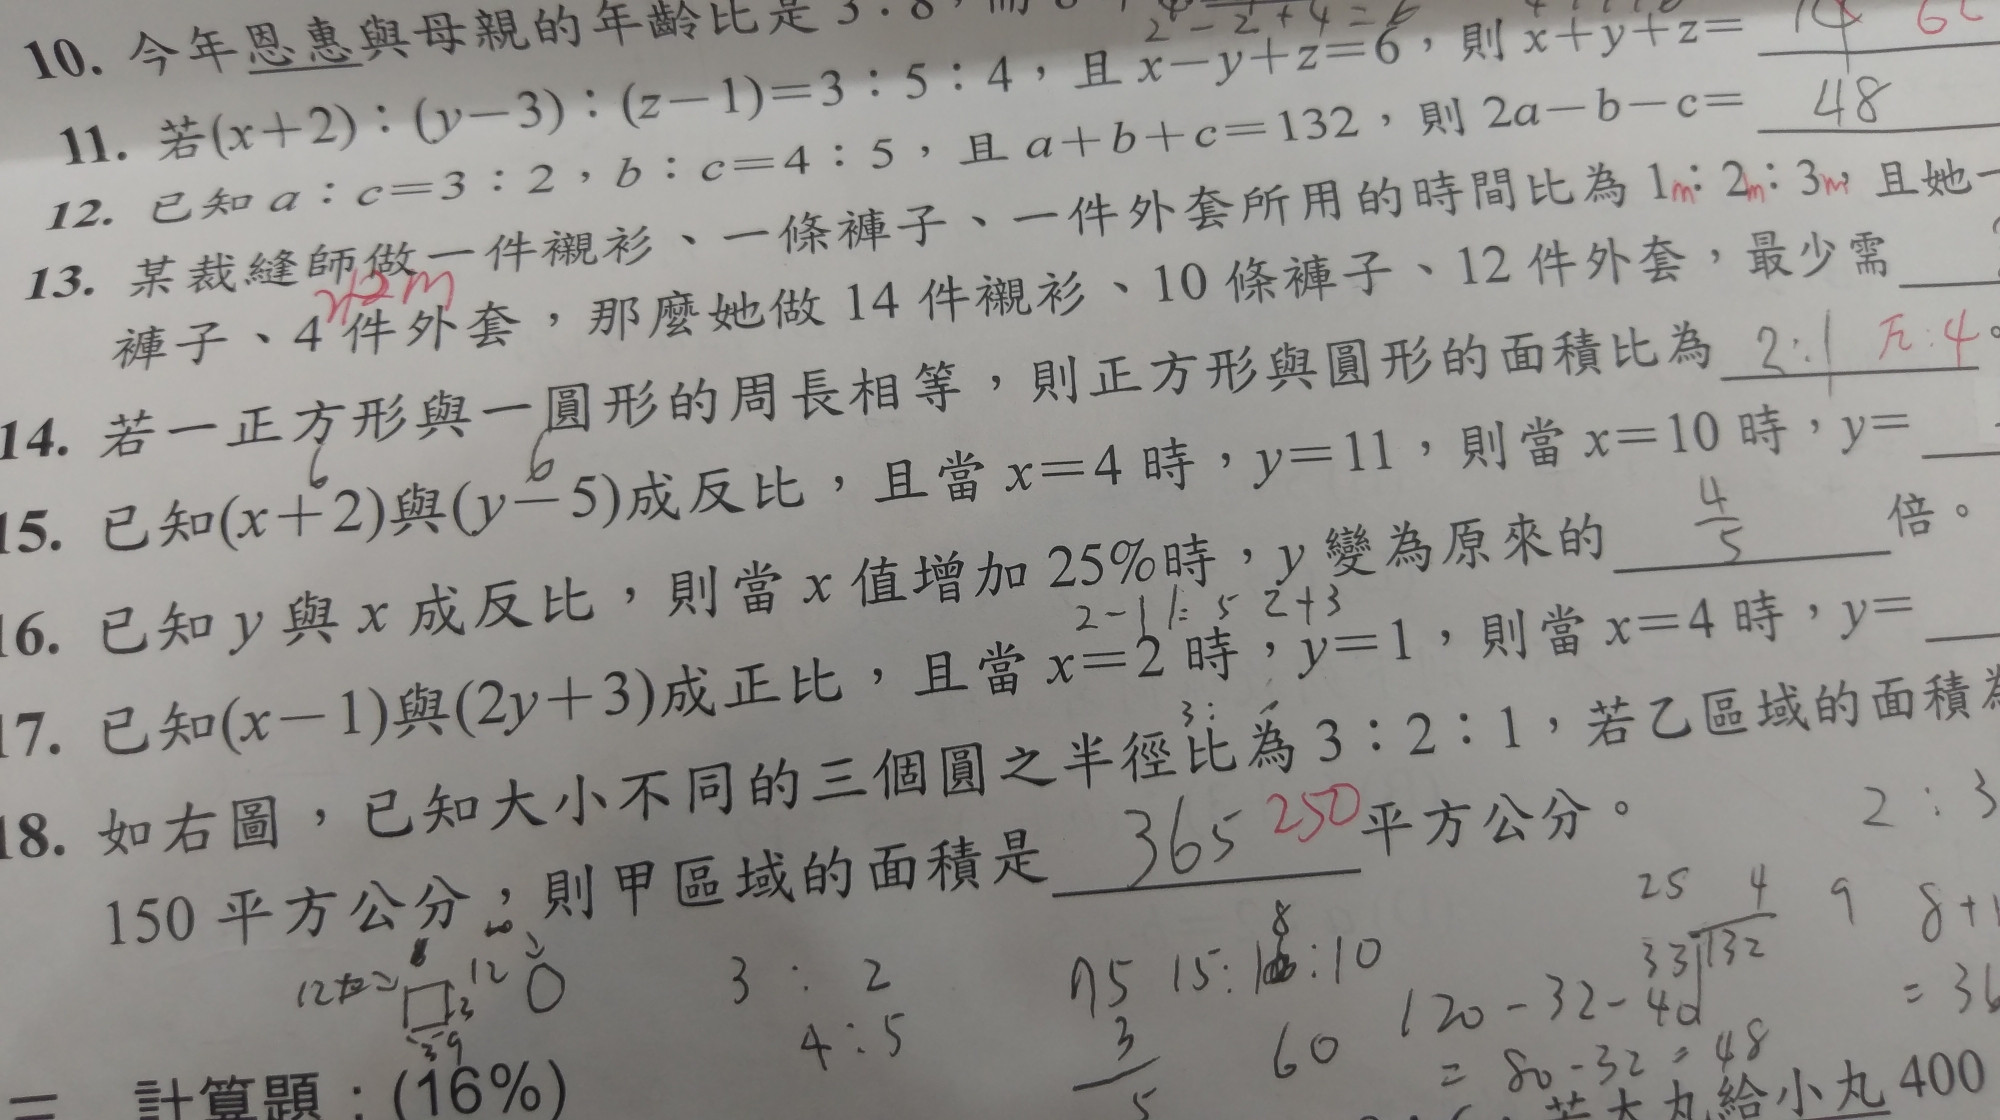 10. 今年恩惠與母親的年齡比是 3：8，
2－2+4=6
11. 若(x+2)：(y－3)：(z－1)=3：5：4，且 x－y+z=6，則 x+y+z= 14
12. 已知 a：c=3：2，b：c=4：5，且 a+b+c=132，則 2a－b－c= 48
13. 某裁縫師做一件襯衫、一條褲子、一件外套所用的時間比為 1m：2m：3m，且她一
12m
褲子、4 件外套，那麼她做 14 件襯衫、10 條褲子、12 件外套，最少需
14. 若一正方形與一圓形的周長相等，則正方形與圓形的面積比為 2:1 π:4。
6 6
15. 已知(x+2)與(y－5)成反比，且當 x=4 時，y=11，則當 x=10 時，y=
16. 已知 y 與 x 成反比，則當 x 值增加 25%時，y 變為原來的 4/5 倍。
2-1 1: 5 2+3
17. 已知(x－1)與(2y+3)成正比，且當 x=2 時，y=1，則當 x=4 時，y=
3:
18. 如右圖，已知大小不同的三個圓之半徑比為 3：2：1，若乙區域的面積為
2:3
150 平方公分，則甲區域的面積是 365 250 平方公分。
25 4 9 8+
33 132
12 12 3 : 2 15: 8 :10
3 120-32-40 =36
39 4:5 3 60
5 = 80-32=48
二 計算題：(16%)
若大丸給小丸 400